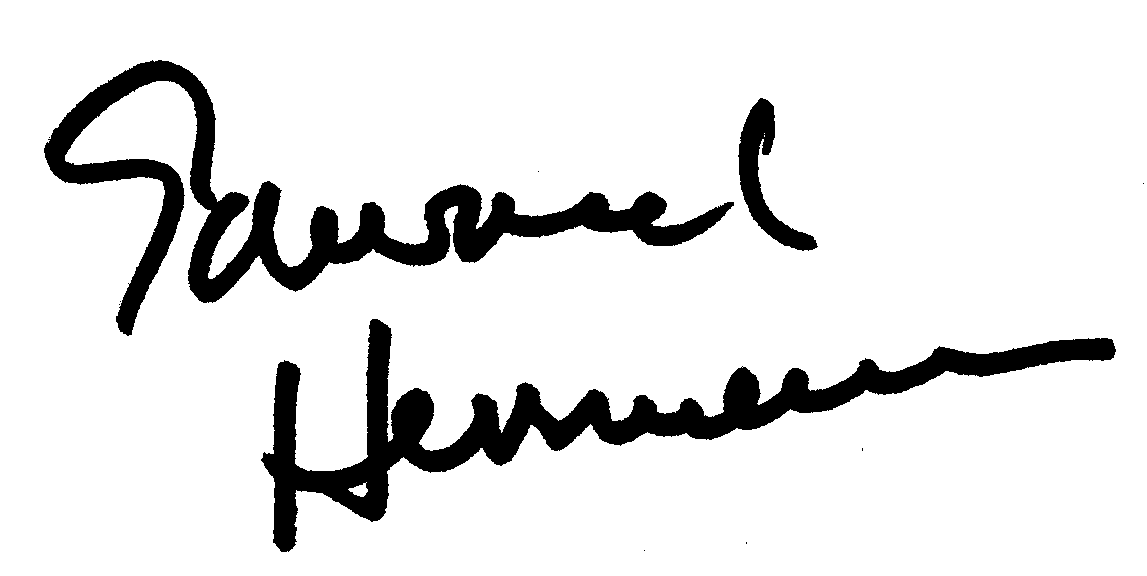 Edward
Herrmann